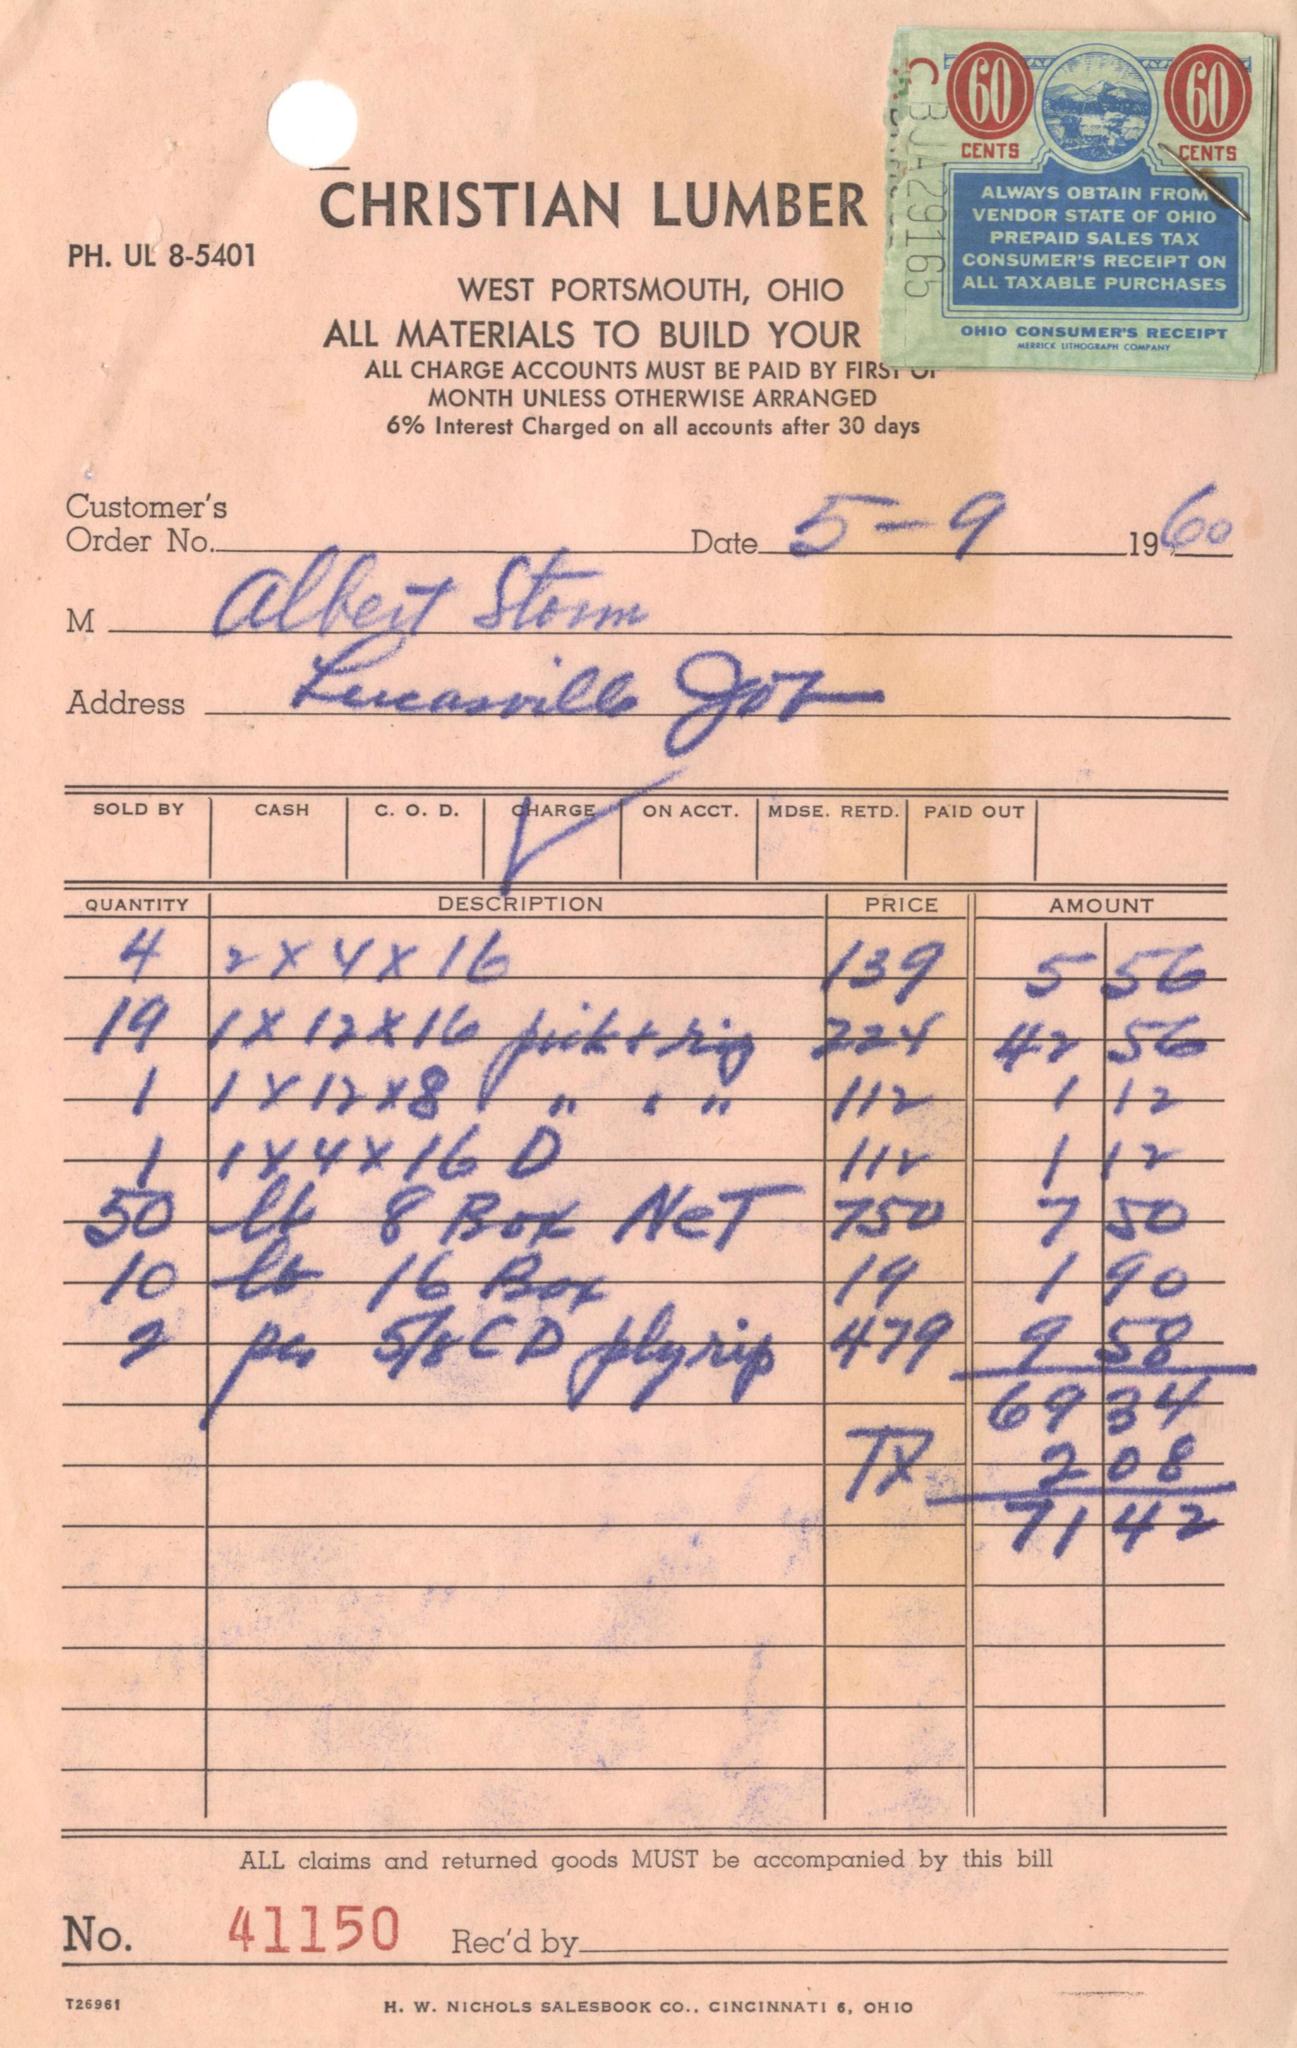 60 CENTS 60 CENTS
ALWAYS OBTAIN FROM
VENDOR STATE OF OHIO
PREPAID SALES TAX
CONSUMER'S RECEIPT ON
ALL TAXABLE PURCHASES
OHIO CONSUMER'S RECEIPT
MERRICK LITHOGRAPH COMPANY
BJA29165
CHRISTIAN LUMBER
PH. UL 8-5401
WEST PORTSMOUTH, OHIO
ALL MATERIALS TO BUILD YOUR
ALL CHARGE ACCOUNTS MUST BE PAID BY FIRST OF
MONTH UNLESS OTHERWISE ARRANGED
6% Interest Charged on all accounts after 30 days
Customer's
Order No. Date 5-9 1960
M Albert Storm
Address Lucasville Job
SOLD BY CASH C. O. D. CHARGE ON ACCT. MDSE. RETD. PAID OUT
QUANTITY DESCRIPTION PRICE AMOUNT
4 2 X 4 X 16 139 5 56
19 1 X 12 X 16 224 42 56
1 1 X 12 X 8 " " " 112 1 12
1 1 X 4 X 16 D 112 1 12
50 lb 8 Box NeT 750 7 50
10 lb 16 Box 19 1 90
2 pcs 5/8 CD plyrip 479 9 58
69 34
TX 2 08
71 42
ALL claims and returned goods MUST be accompanied by this bill
No. 41150 Rec'd by
T26961 H. W. NICHOLS SALESBOOK CO., CINCINNATI 6, OHIO